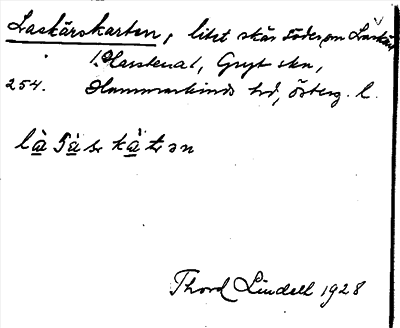 Laskärskarten, litet skär söder om Laskär
i Harstena l, Gryt skn,
254. Hammarkinds hd, Österg. l.
Thord Lindell 1928